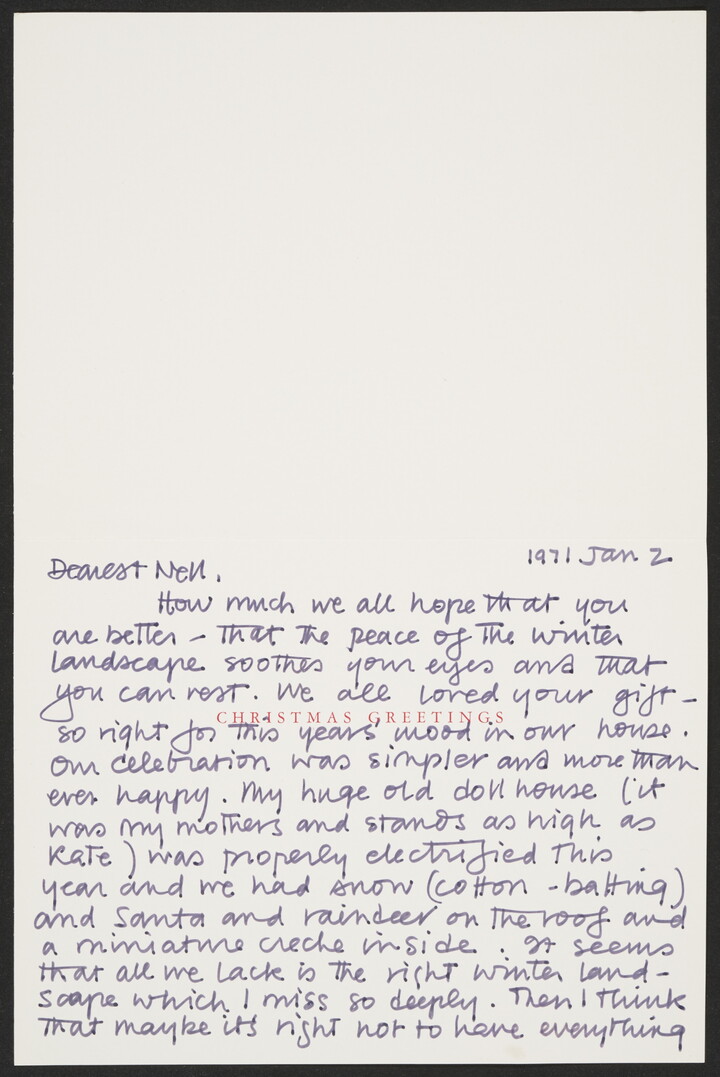 1971 Jan 2
Dearest Nell,
How much we all hope that you
are better – that the peace of the winter
landscape soothes your eyes and that
you can rest. We all loved your gift –
CHRISTMAS GREETINGS
so right for this years mood in our house.
Our celebration was simpler and more than
ever happy. My huge old doll house (it
was my mothers and stands as high as
Kate) was properly electrified this
year and we had snow (cotton-batting)
and Santa and raindeer on the roof and
a miniature creche inside. It seems
that all we lack is the right winter land-
scape which I miss so deeply. Then I think
that maybe it's right not to have everything